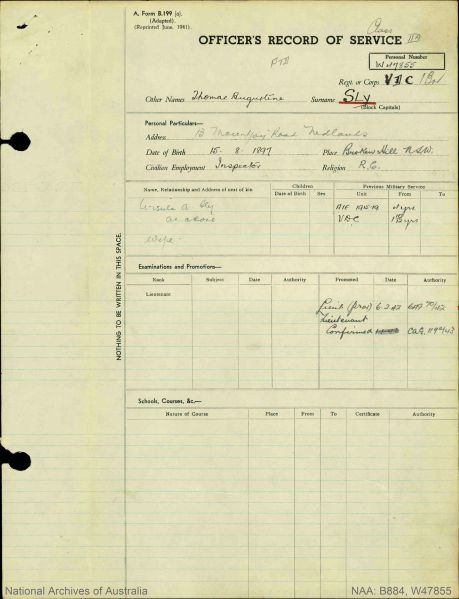 A. Form B.199 (a).
(Adapted).
(Reprinted June, 1941).
Class
OFFICER'S RECORD OF SERVICE
Personal Number
W47855
Regt. or Corps VDC 1 Bn
Other Names Thomas Augustine Surname SLY
(Block Capitals)
Personal Particulars—
Address Road Nedlands
Date of Birth 15-8-1897 Place Broken Hill N.S.W.
Civilian Employment Inspector Religion R.C.
Name, Relationship and Address of next of kin Children Previous Military Service
Date of Birth Sex Unit From To
Ursula A Sly AIF 1915-19 4 yrs
as above VDC yrs
Wife
Examinations and Promotions—
Rank Subject Date Authority Promoted Date Authority
Lieutenant
Lieut (prov) 6-2-42
Lieutenant
Confirmed
Schools, Courses, &c.—
Nature of Course Place From To Certificate Authority
NOTHING TO BE WRITTEN IN THIS SPACE.
National Archives of Australia NAA: B884, W47855